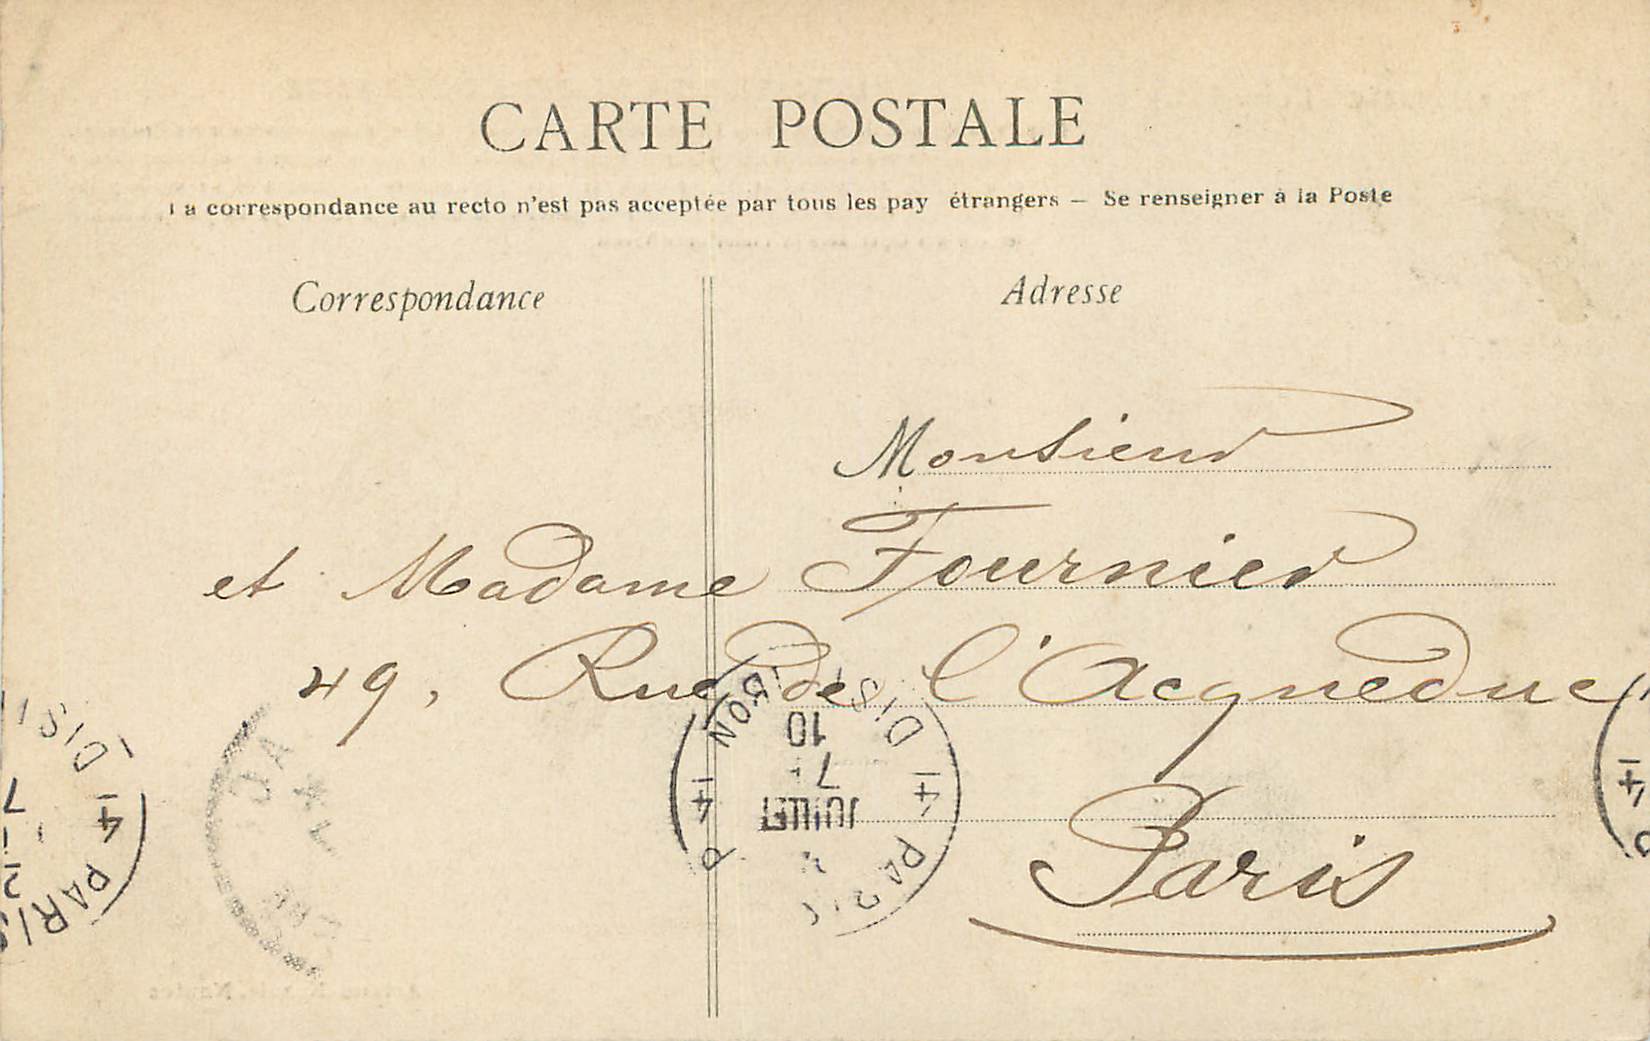 CARTE POSTALE
La correspondance au recto n'est pas acceptée par tous les pay étrangers — Se renseigner à la Poste
Correspondance
Adresse
Monsieur
et Madame Fournier
49, Rue de l'Acqueduc
Paris
DISTRIBUTION
10
7
JUILLET
14 PARIS 14
DIST
7
14 PARIS
14